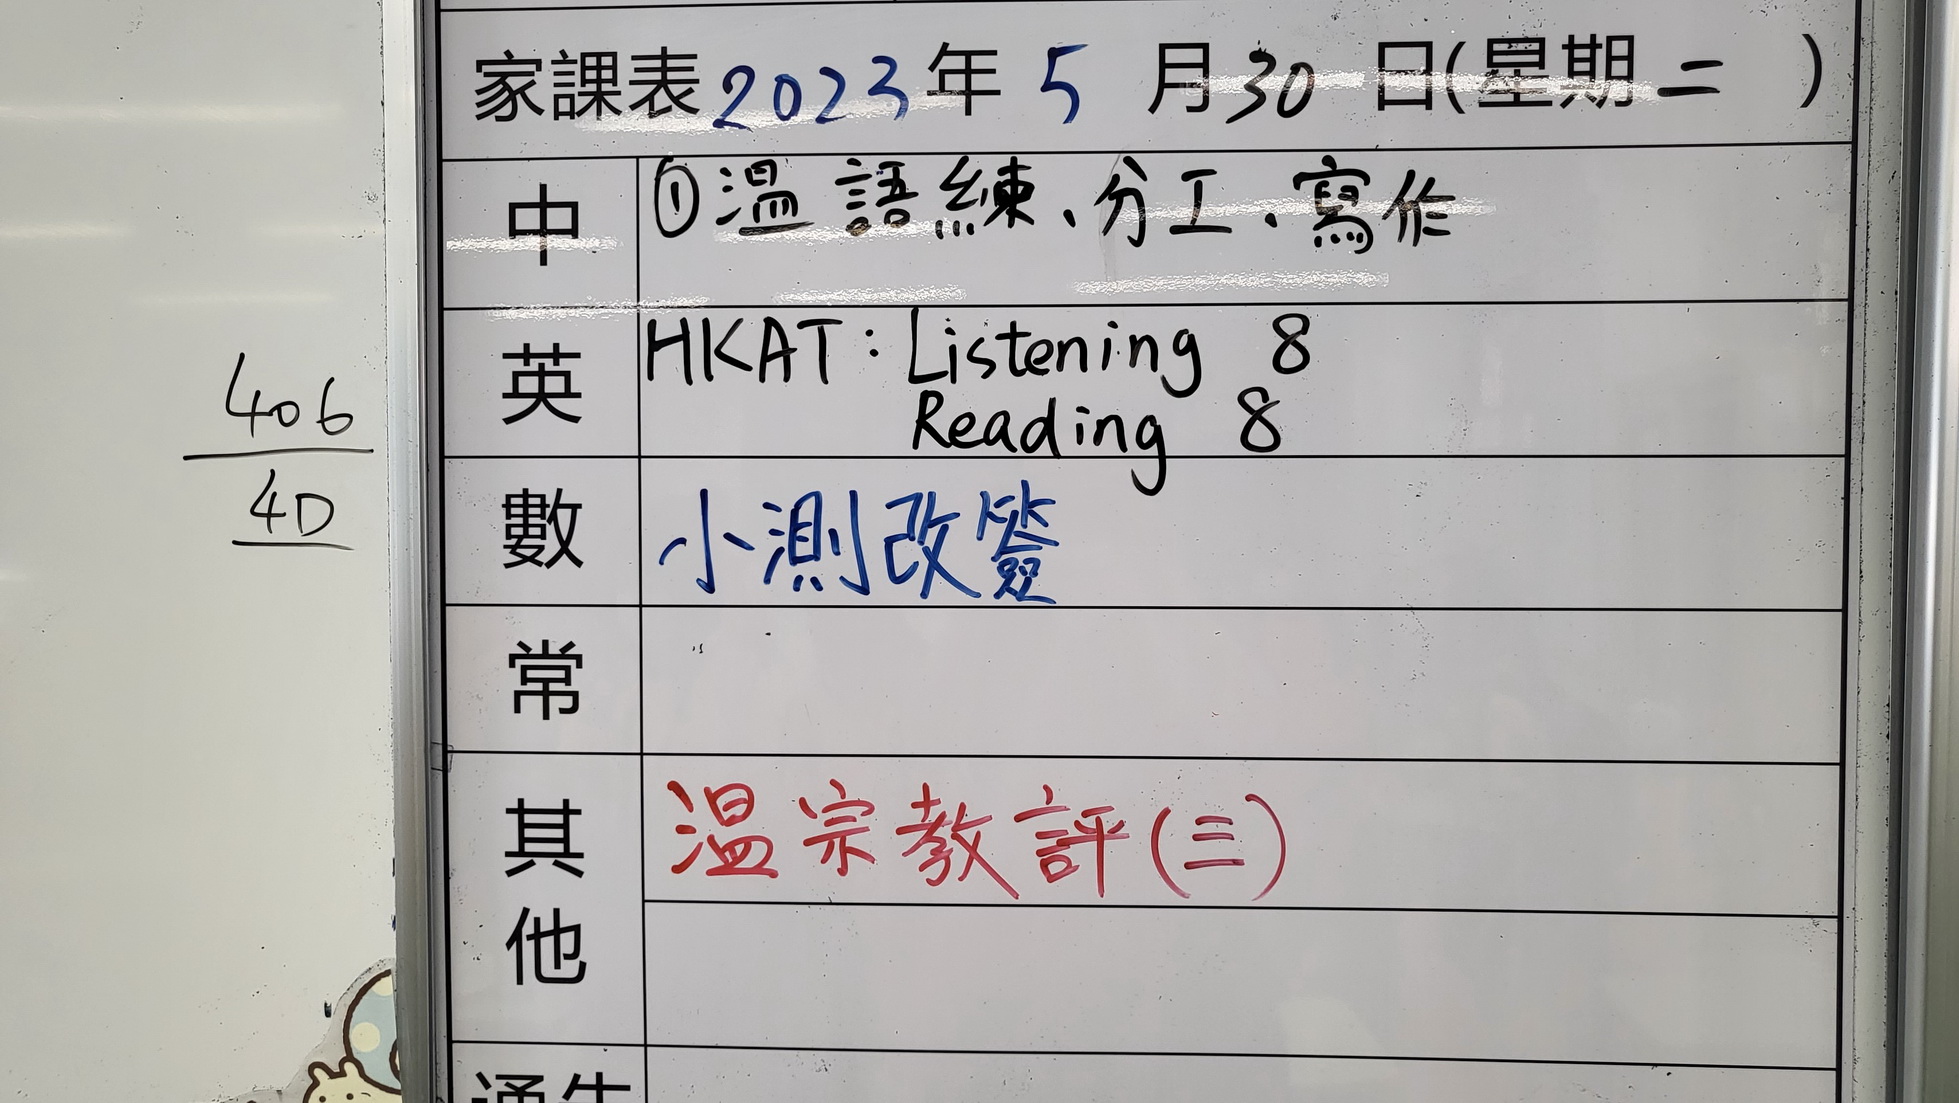 家課表 2023年 5 月 30 日(星期 二 )
中 ①溫 語練、分工、寫作
英 HKAT: Listening 8
Reading 8
數 小測改簽
常
其他 溫宗教評(三)
通告
406
4D